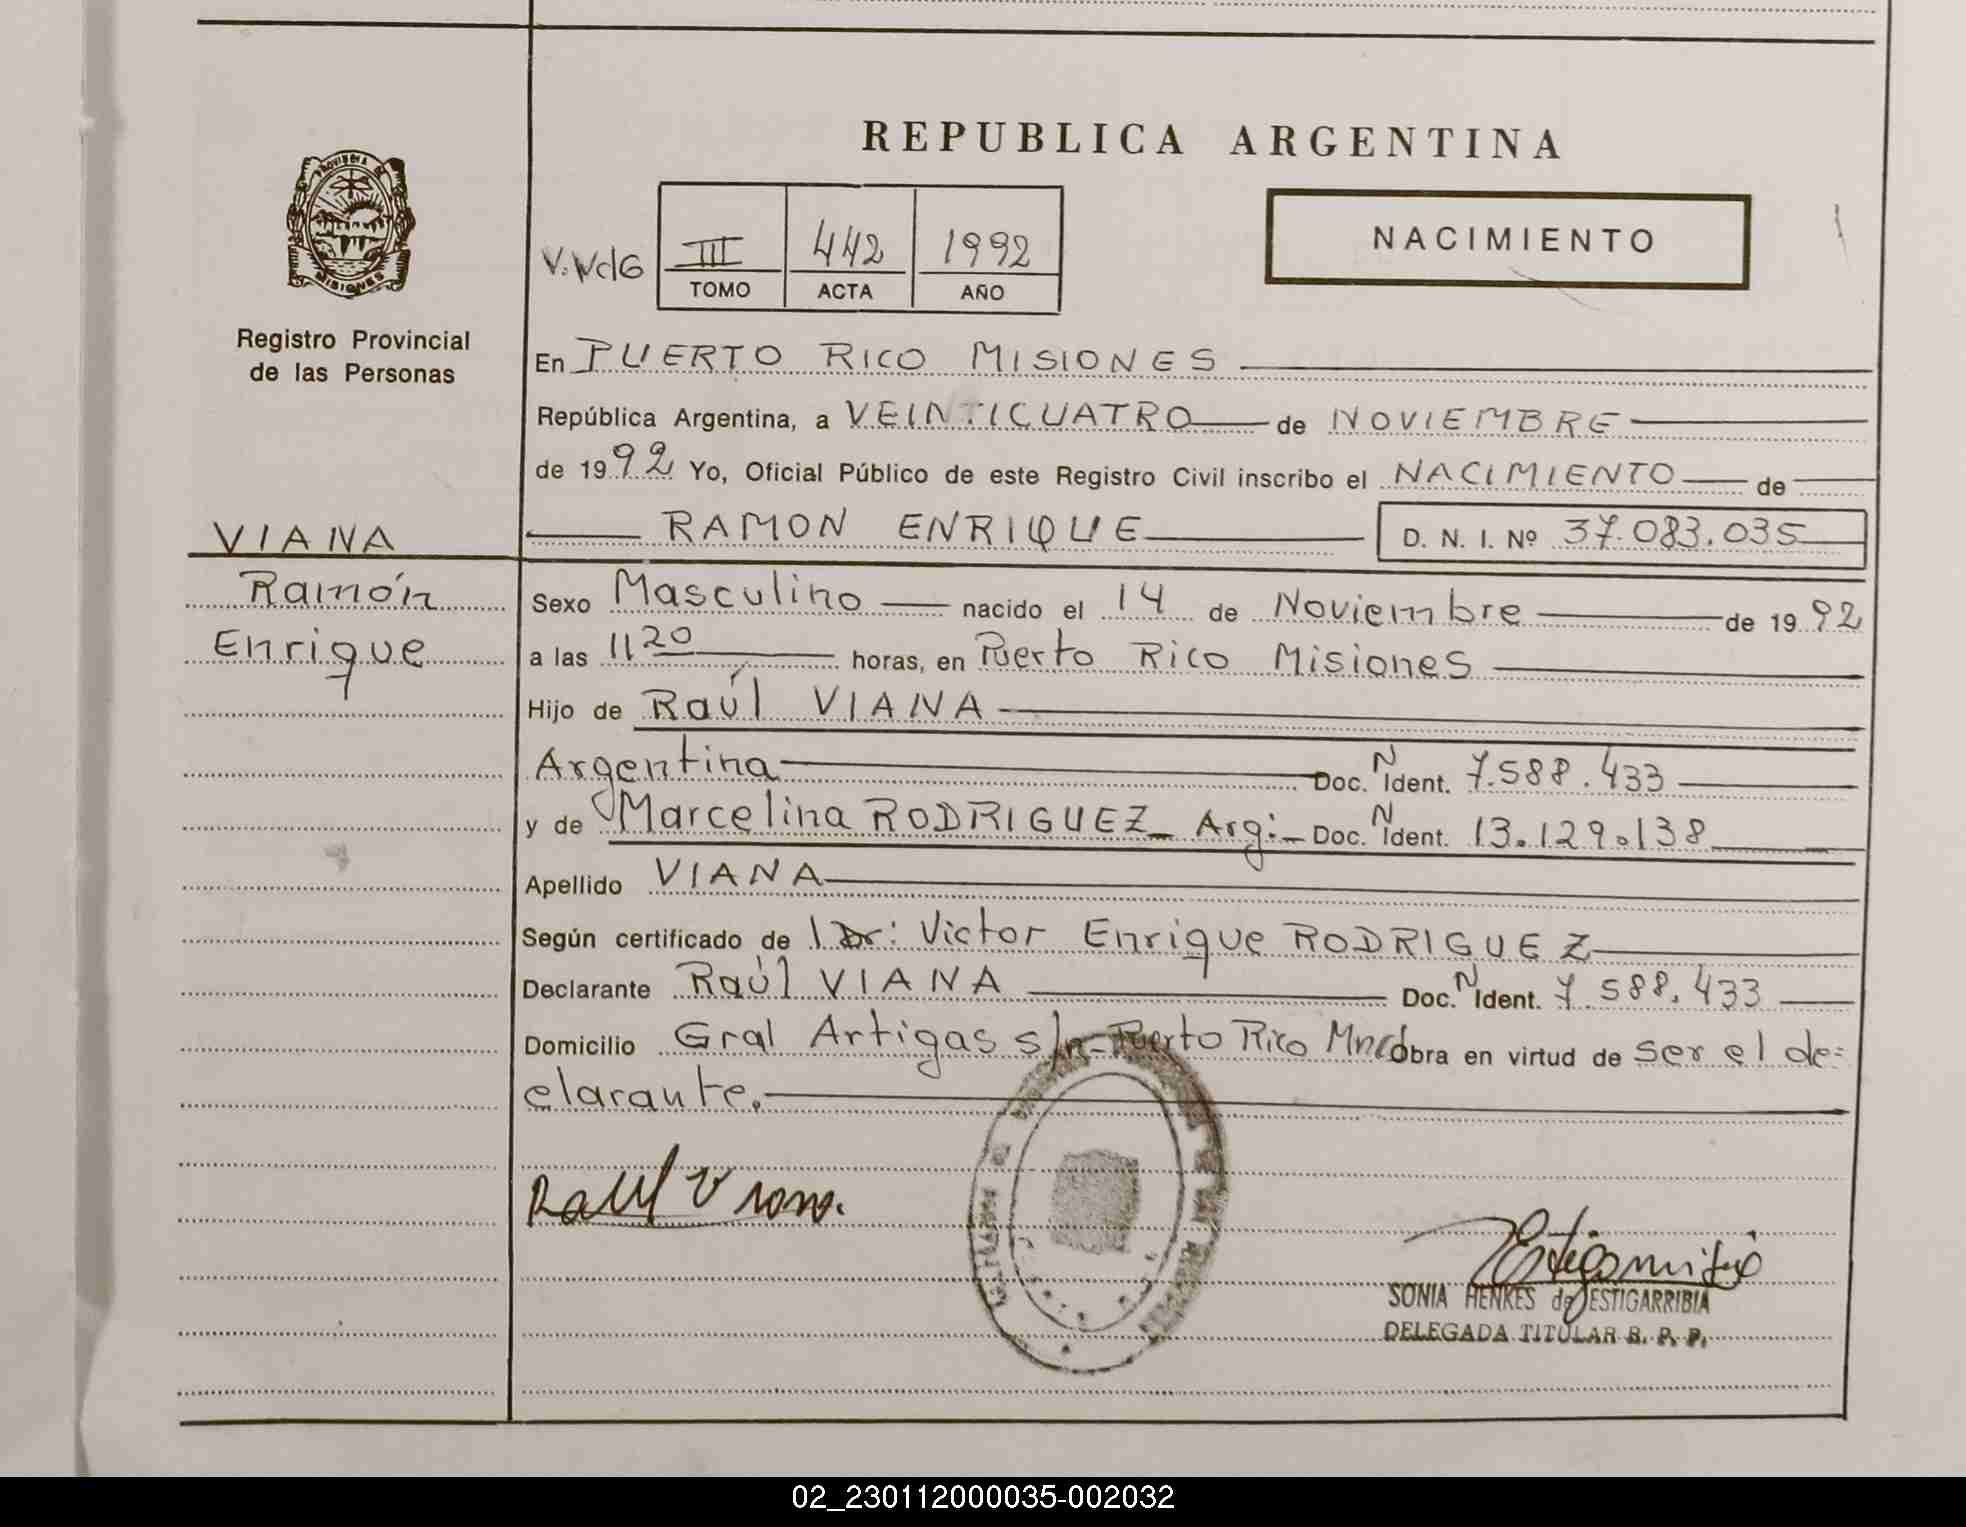 REPUBLICA ARGENTINA
PROVINCIA DE MISIONES
Registro Provincial
de las Personas
III 442 1992
TOMO ACTA AÑO
NACIMIENTO
En PUERTO RICO MISIONES
República Argentina, a VEINTICUATRO de NOVIEMBRE
de 1992 Yo, Oficial Público de este Registro Civil inscribo el NACIMIENTO de
RAMON ENRIQUE D. N. I. Nº 37.083.035
VIANA
Ramón
Enrique
Sexo Masculino nacido el 14 de Noviembre de 1992
a las 11 20 horas, en Puerto Rico Misiones
Hijo de Raúl VIANA
Argentina Doc. N Ident. 7.588.433
y de Marcelina RODRIGUEZ_ Arg:_ Doc. N Ident. 13.129.138
Apellido VIANA
Según certificado de Dr: Victor Enrique RODRIGUEZ
Declarante Raúl VIANA Doc. N Ident. 7 588.433
Domicilio Gral Artigas s/n- Puerto Rico Mnes Obra en virtud de ser el de=
clarante.
Raul Viana.
SONIA HENKES de ESTIGARRIBIA
DELEGADA TITULAR R. P. P.
02_230112000035-002032